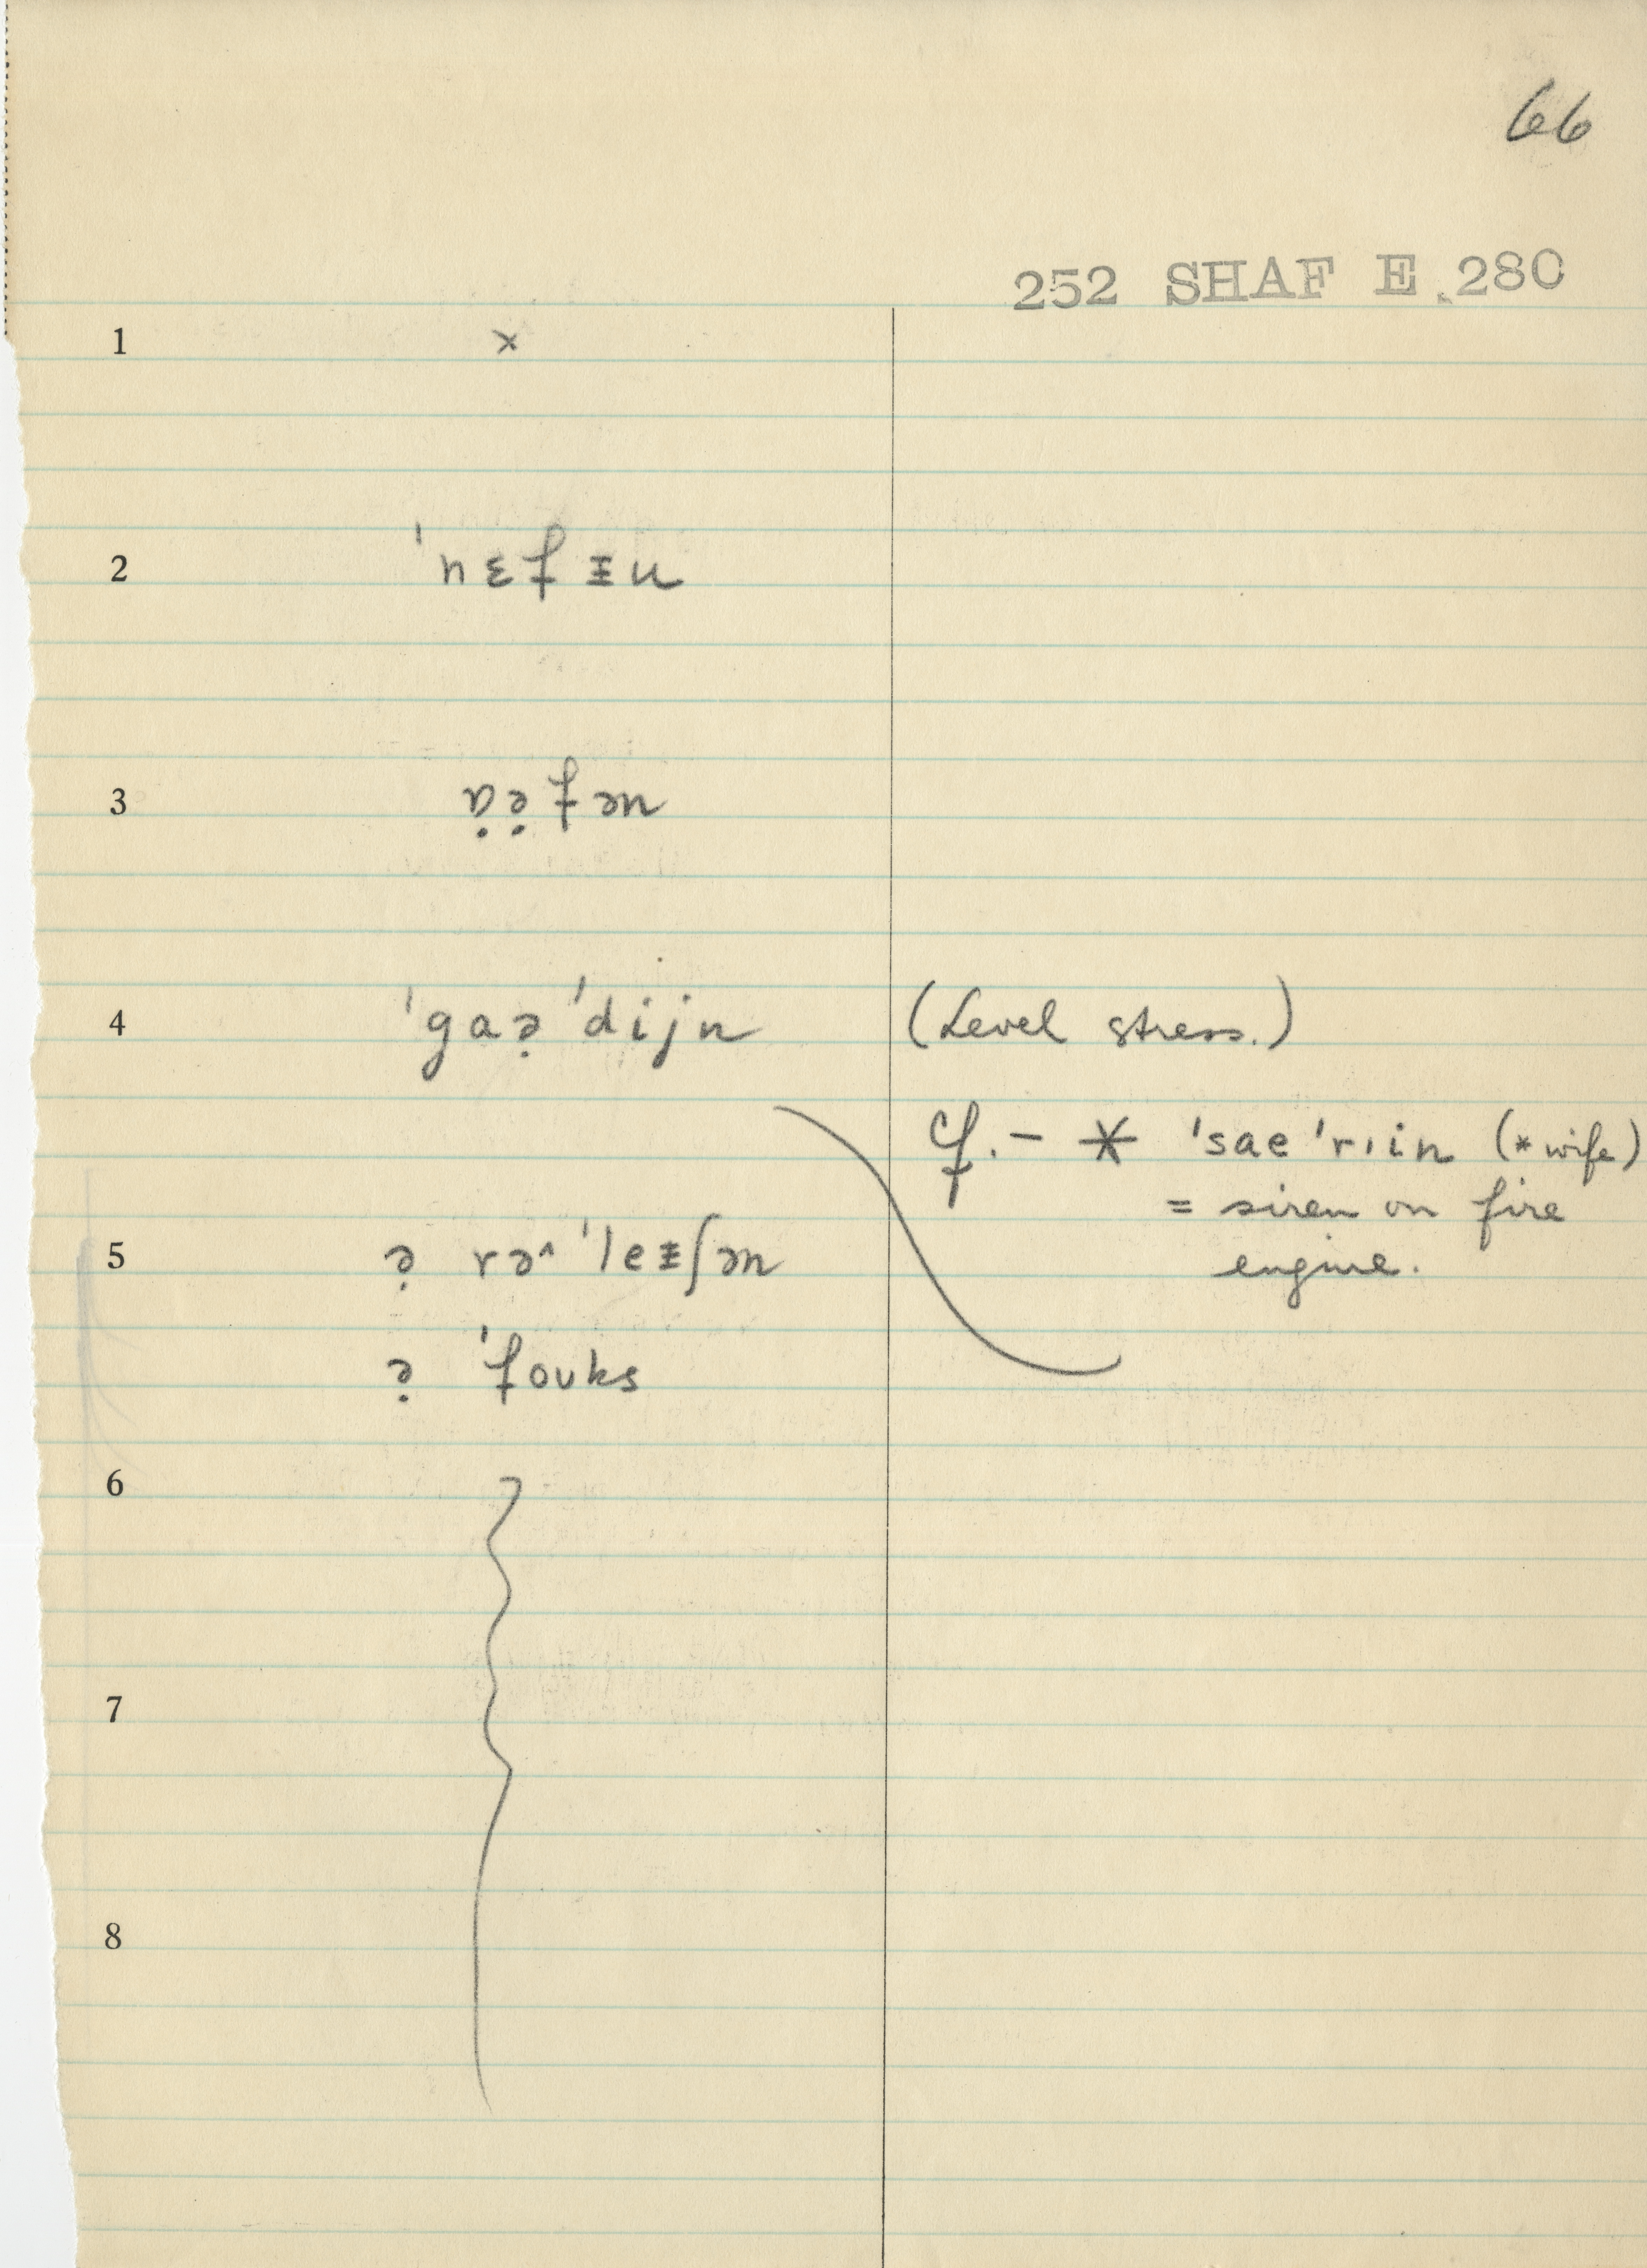 66
252 SHAF E.280
1 ×
2 ˈnɛfᵻn
3 ɒ̣ə̣fən
4 ˈgaə̣ˈdijn (Level stress.)
cf. – * ˈsaeˈrıin (* wife)
= siren on fire
engine.
5 ə̣ rə^ˈleᵻʃən
ə̣ ˈfoʊks
6
7
8